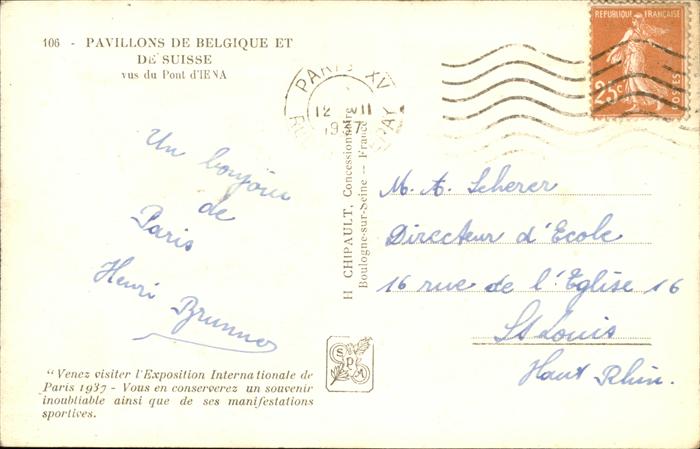 106 - PAVILLONS DE BELGIQUE ET
DE SUISSE
vus du Pont d'IENA
PARIS XV
12 VII
1937
REPUBLIQUE FRANÇAISE
25c
POSTES
Un bonjour
de
Paris
Henri Brunner
H CHIPAULT, Concessionnaire
Boulogne-sur-Seine -- France
M. A. Scherer
Directeur d'Ecole
16 rue de l'Eglise 16
St Louis
Haut Rhin.
"Venez visiter l'Exposition Internationale de
Paris 1937 - Vous en conserverez un souvenir
inoubliable ainsi que de ses manifestations
sportives.
SPM